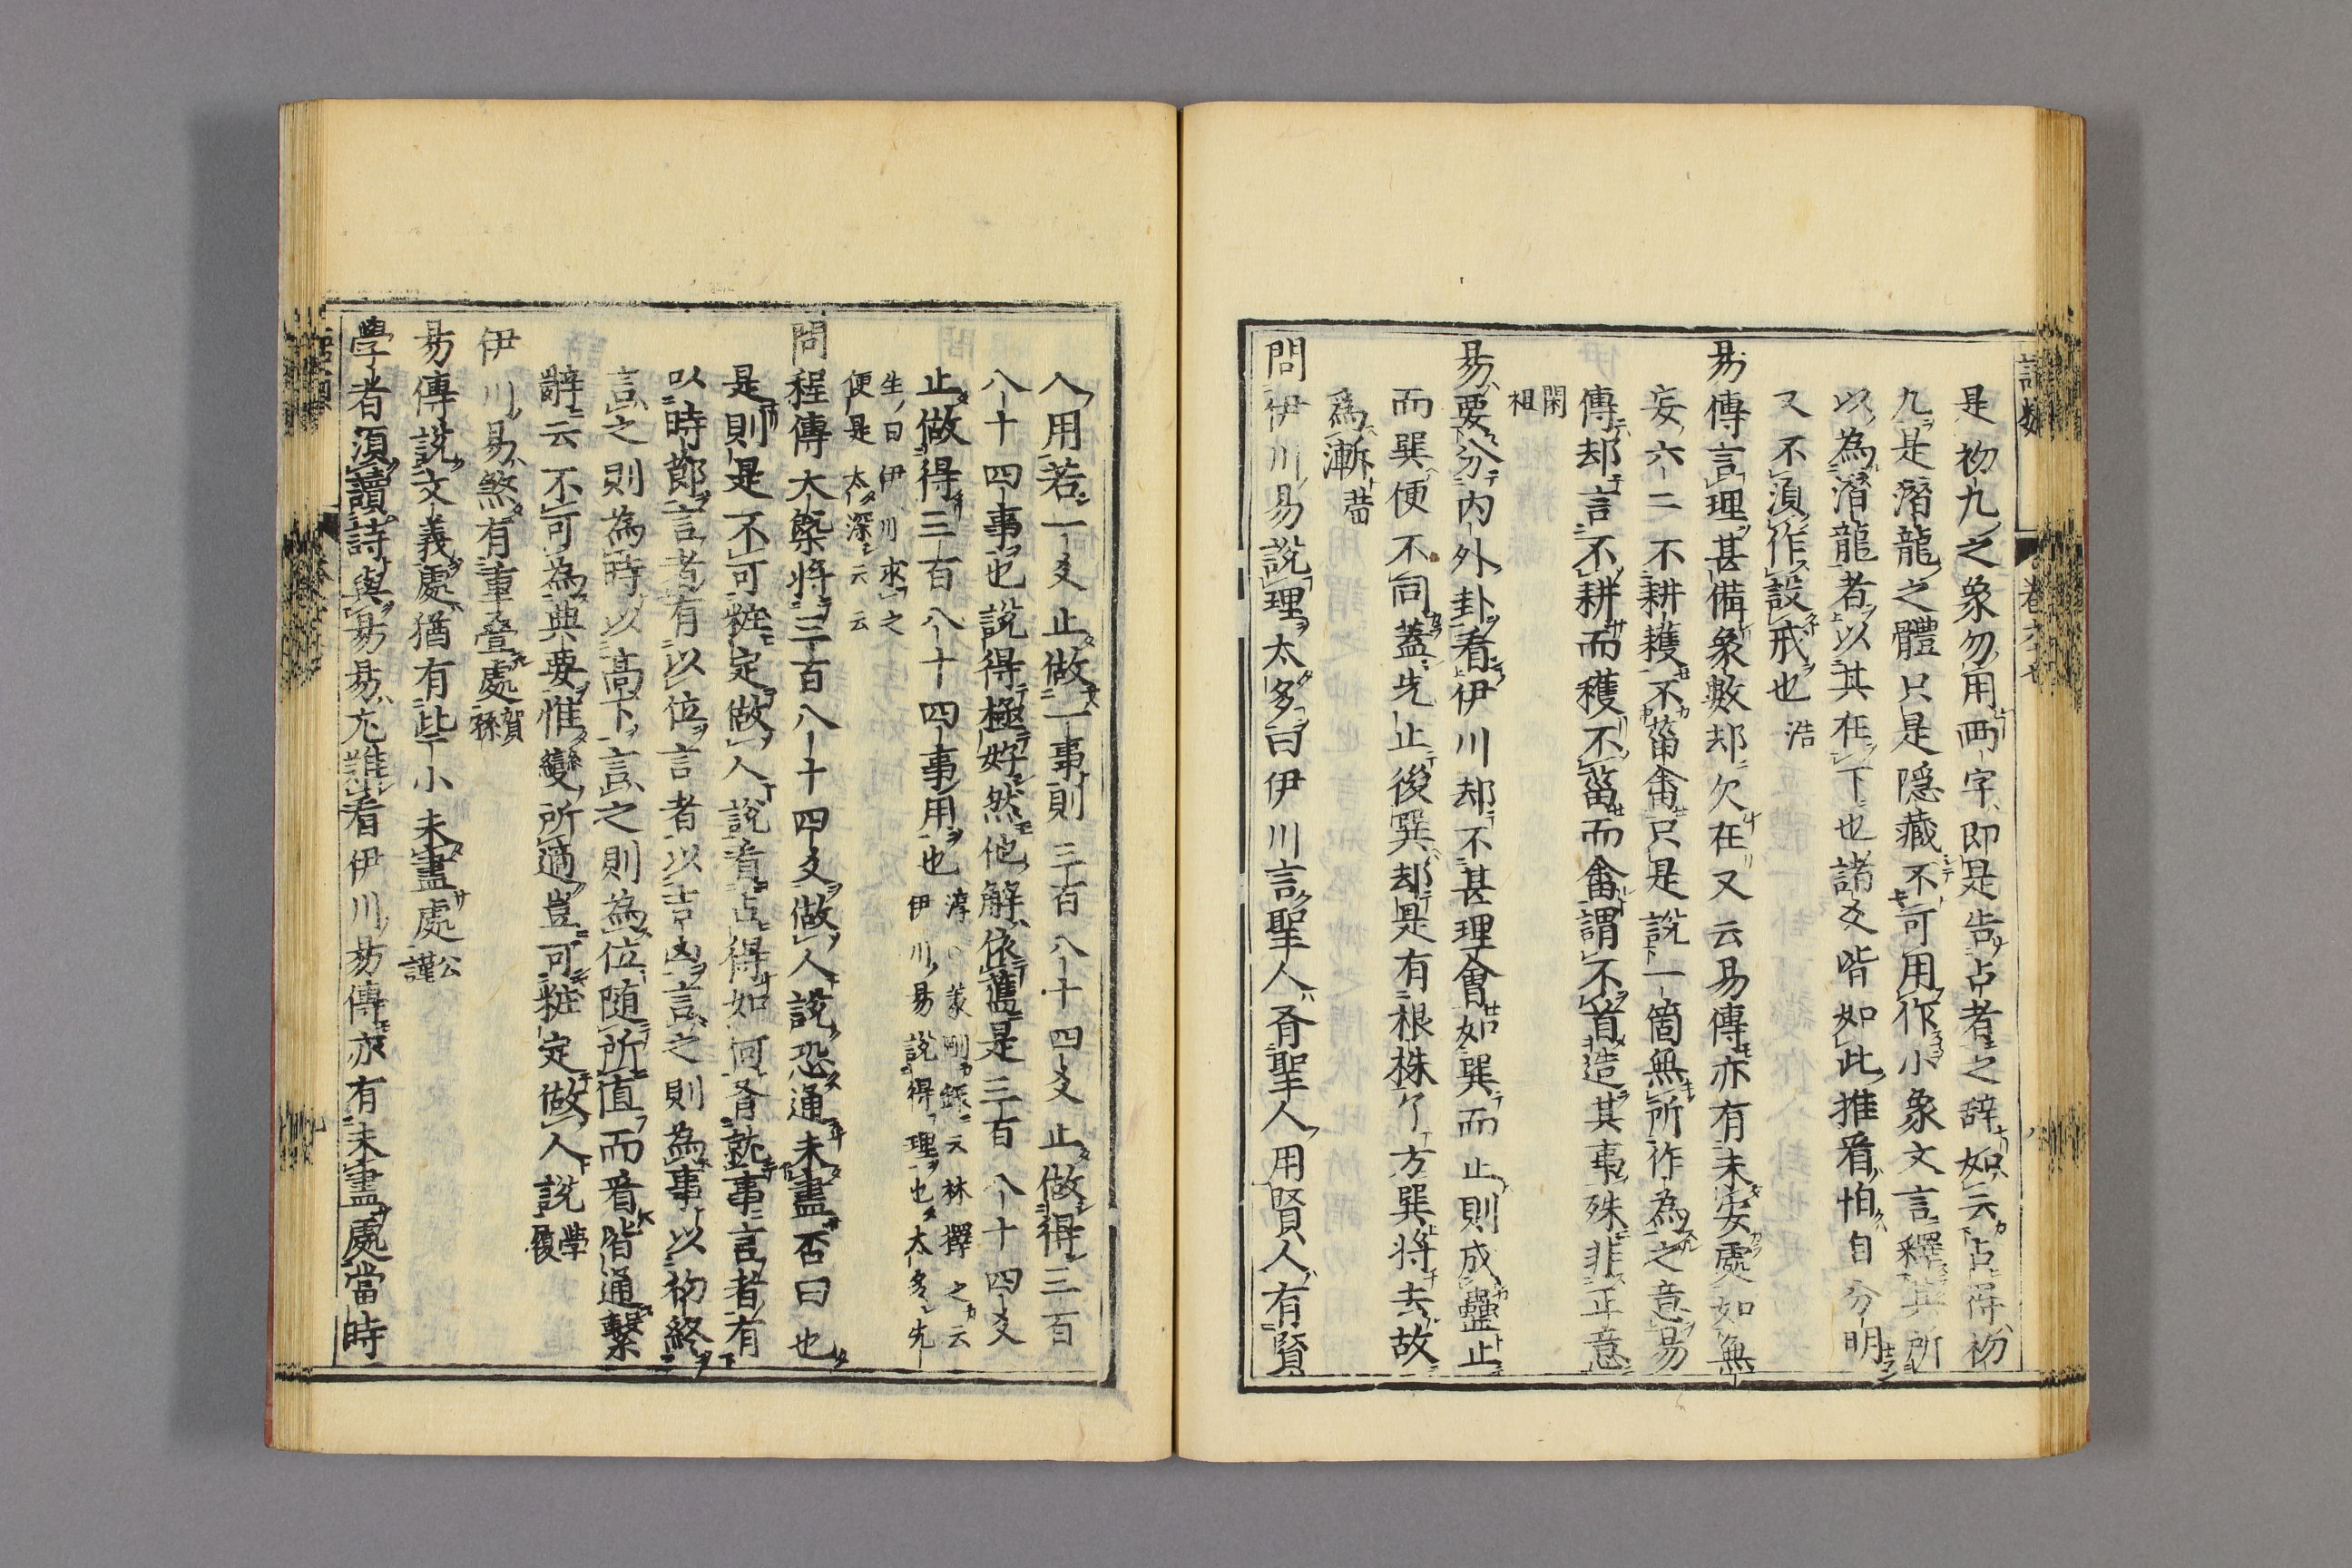 是初九之象勿用兩字即是告占者之辞如云占得初
九是潛龍之體只是隱藏不可用作小象文言釋其所
以為潛龍者以其在下也諸爻皆如此推看怕自分明
又不須作設戒也 浩
易傳言理甚備象數却欠在又云易傳亦有未安處如無
妄六二不耕穫不菑畬只是說一箇無所作為之意易
傳却言不耕而穫不菑而畬謂不首造其事殊非正意
閎祖
易要分內外卦看伊川却不甚理會如巽而止則成蠱止
而巽便不同蓋先止後巽却是有根株了方巽將去故
為漸 㽦
問伊川易說理太多曰伊川言聖人有聖人用賢人有賢
人用若一爻止做一事則三百八十四爻止做得三百
八十四事也說得極好然他解依舊是三百八十四爻
止做得三百八十四事用也 淳○義剛錄云林擇之云
伊川易說得理也太多先
生曰伊川求之
便是太深云云
問程傳大槩將三百八十四爻做人說恐通未盡否曰也
是則是不可粧定做人說看占得如何有就事言者有
以時節言者有以位言者以吉凶言之則為事以初終
言之則為時以高下言之則為位隨所值而看皆通繫
辭云不可為典要惟變所適豈可粧定做人說 學履
伊川易煞有重疊處 賀孫
易傳說文義處猶有些小未盡處 公謹
學者須讀詩與易易尤難看伊川易傳亦有未盡處當時